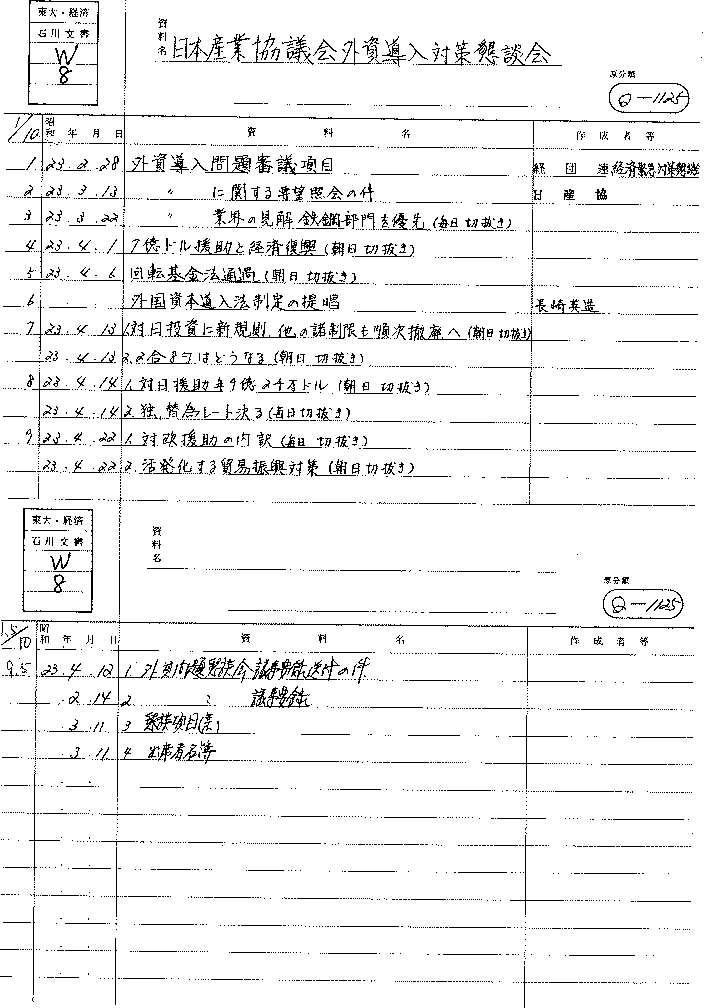 東大・経済
石川文書
W
8
資料名 日本産業協議会外資導入対策懇談会
原分類
Q-1125
1/10 昭和 年 月 日 資料名 作成者等
1 23.2.28 外資導入問題審議項目 経団連 経済緊急対策懇談
2 23.3.13 〃 に関する要望照会の件 日産協
3 23.3.22 〃 業界の見解 鉄鋼部門を優先(毎日切抜き)
4 23.4.1 7億ドル援助と経済復興(朝日切抜き)
5 23.4.6 回転基金法通過(朝日切抜き)
6 . . 外国資本導入法制定の提唱 長崎英造
7 23.4.13 1.対日投資に新規則、他の諸制限も順次撤廃へ(朝日切抜き)
23.4.13 2.2合8勺はどうなる(朝日切抜き)
8 23.4.14 1.対日援助年9億24万ドル(朝日切抜き)
23.4.14 2.独、替為レート決る(毎日切抜き)
9 23.4.22 1.対欧援助の内訳(毎日切抜き)
23.4.22 2.活発化する貿易振興対策(朝日切抜き)
東大・経済
石川文書
W
8
資料名
原分類
Q-1125
1.5/10 昭和 年 月 日 資料名 作成者等
9.5 23.4.12 1 外資問題懇談会議事要録送付の件
2.14 2 〃 議事要録
3.11 3 懇談項目(案)
3.11 4 出席者名簿